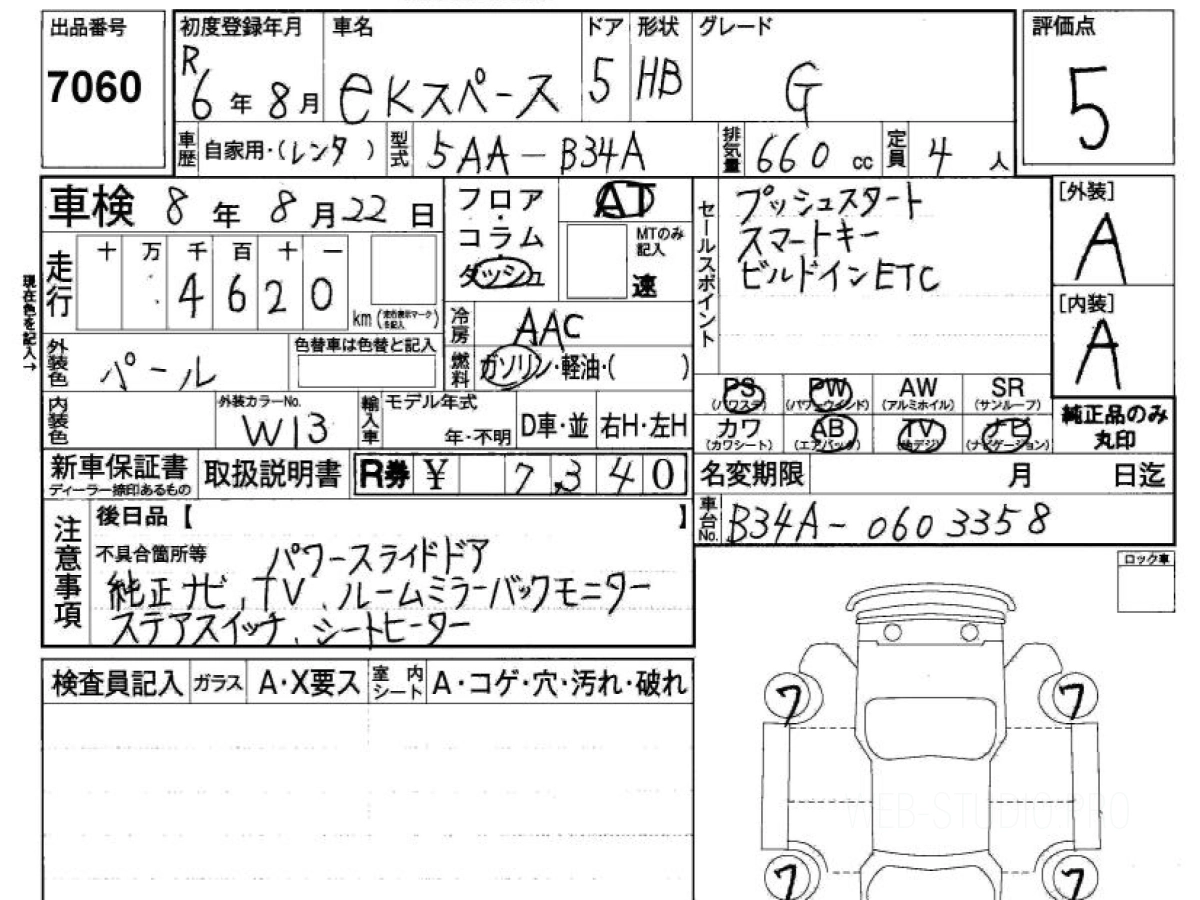 出品番号
7060
初度登録年月
R6年8月
車名
eKスペース
ドア
5
形状
HB
グレード
G
評価点
5
車歴 自家用・(レンタ)
型式 5AA-B34A
排気量 660 cc
定員 4 人
車検 8年8月22日
フロア・コラム・ダッシュ
AT
MTのみ記入
速
セールスポイント
プッシュスタート
スマートキー
ビルドインETC
[外装]
A
[内装]
A
現在色を記入→
走行
十 万 千 百 十 一
4 6 2 0
km(走行表示マークを記入)
冷房 AAC
燃料 ガソリン・軽油・( )
外装色 パール
色替車は色替と記入
内装色
外装カラーNo.
W13
輸入車
モデル年式
年・不明
D車・並
右H・左H
PS(パワステ) PW(パワーウインド) AW(アルミホイル) SR(サンルーフ)
カワ(カワシート) AB(エアバック) TV(地デジ) ナビ(ナビゲーション)
純正品のみ
丸印
新車保証書
ディーラー捺印あるもの
取扱説明書
R券 ¥ 7,340
名変期限 月 日迄
車台No. B34A-0603358
注意事項
後日品【 】
不具合箇所等 パワースライドドア
純正ナビ、TV、ルームミラーバックモニター
ステアスイッチ、シートヒーター
ロック車
検査員記入
ガラス
A・X要ス
室内シート
A・コゲ・穴・汚れ・破れ
ワ ワ
WEB-STUDIO.PRO
ワ ワ